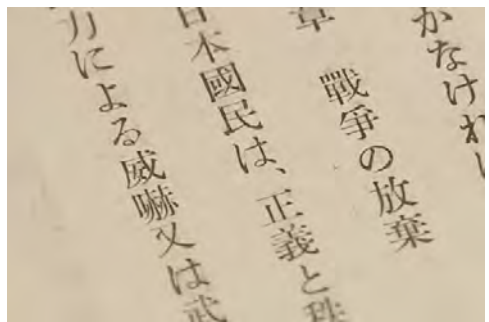 かなけれ
章　戰爭の放棄
日本國民は、正義と秩
力による威嚇又は武